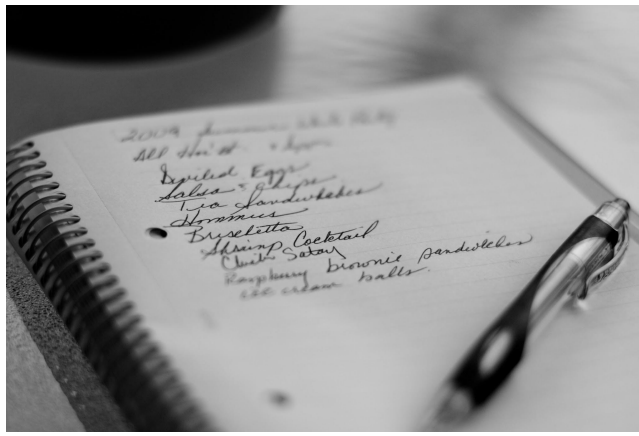 2009 Summer White Party
All
Deviled Eggs
Salsa & Chips
Tea Sandwhches
Hommus
Brusetta
Shrimp Cocktail
Satay
Raspberry brownie sandwiches
ice cream balls.